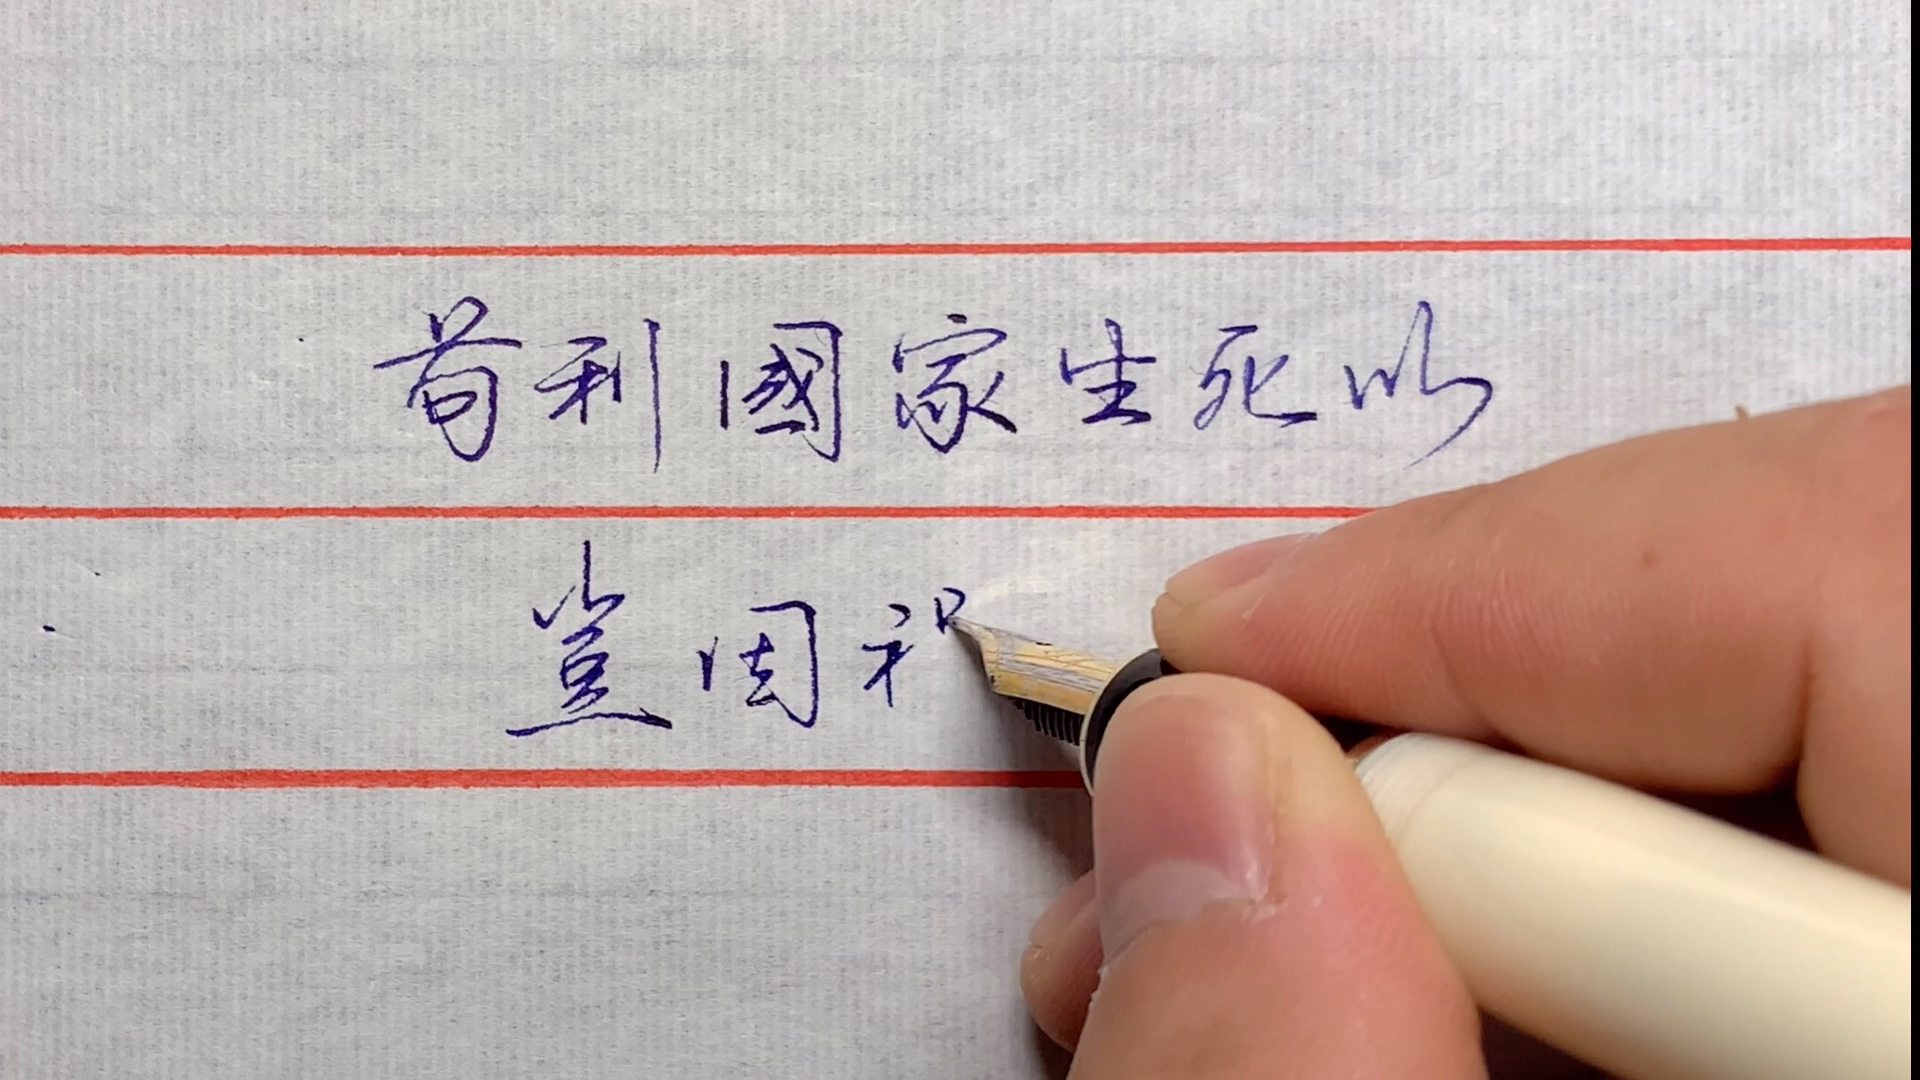 苟利國家生死以
豈因祸